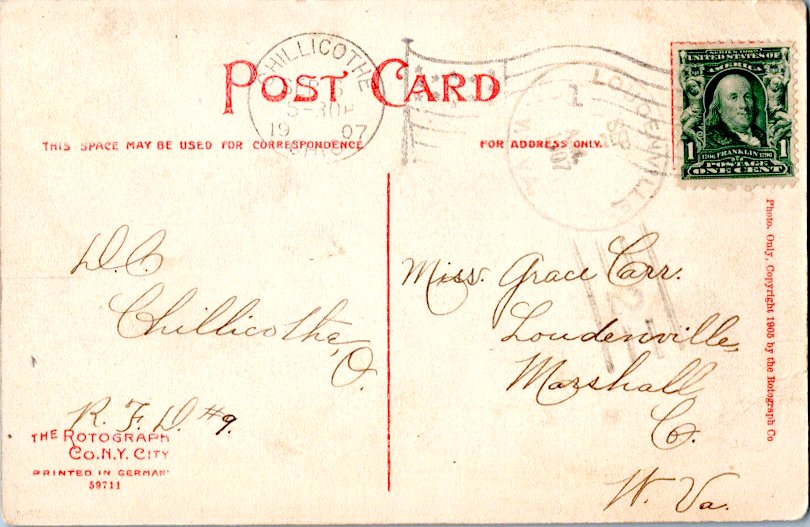 POST CARD
CHILLICOTHE
5-30P
1907
OHIO
THIS SPACE MAY BE USED FOR CORRESPONDENCE
FOR ADDRESS ONLY.
SERIES 1902
UNITED STATES OF
AMERICA
1 FRANKLIN 1
POSTAGE
ONE CENT
W.VA
1907
D.C.
Chillicothe, O.
R. F. D. #9.
Miss. Grace Carr.
Loudenville,
Marshall
Co.
W. Va.
THE ROTOGRAPH
CO. N.Y. CITY
PRINTED IN GERMANY
59711
Photo. Only, Copyright 1905 by the Rotograph Co